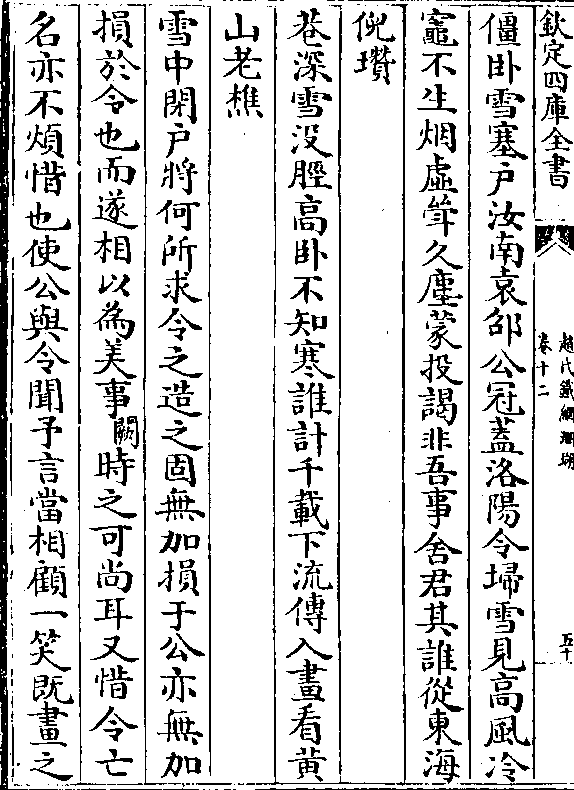 欽定四庫全書
趙氏鐵網珊瑚
卷十二
五十
僵卧雪塞户汝南袁邵公冠蓋洛陽令埽雪見高風冷
竈不生烟虛聳久塵蒙投謁非吾事舍君其誰從東海
倪瓚
巷深雪没脛高卧不知寒誰計千載下流傳入畫看黄
山老樵
雪中閉户將何所求令之造之固無加損于公亦無加
損於令也而遂相以為美事闕時之可尚耳又惜令亡
名亦不煩惜也使公與令聞予言當相顧一笑既畫之